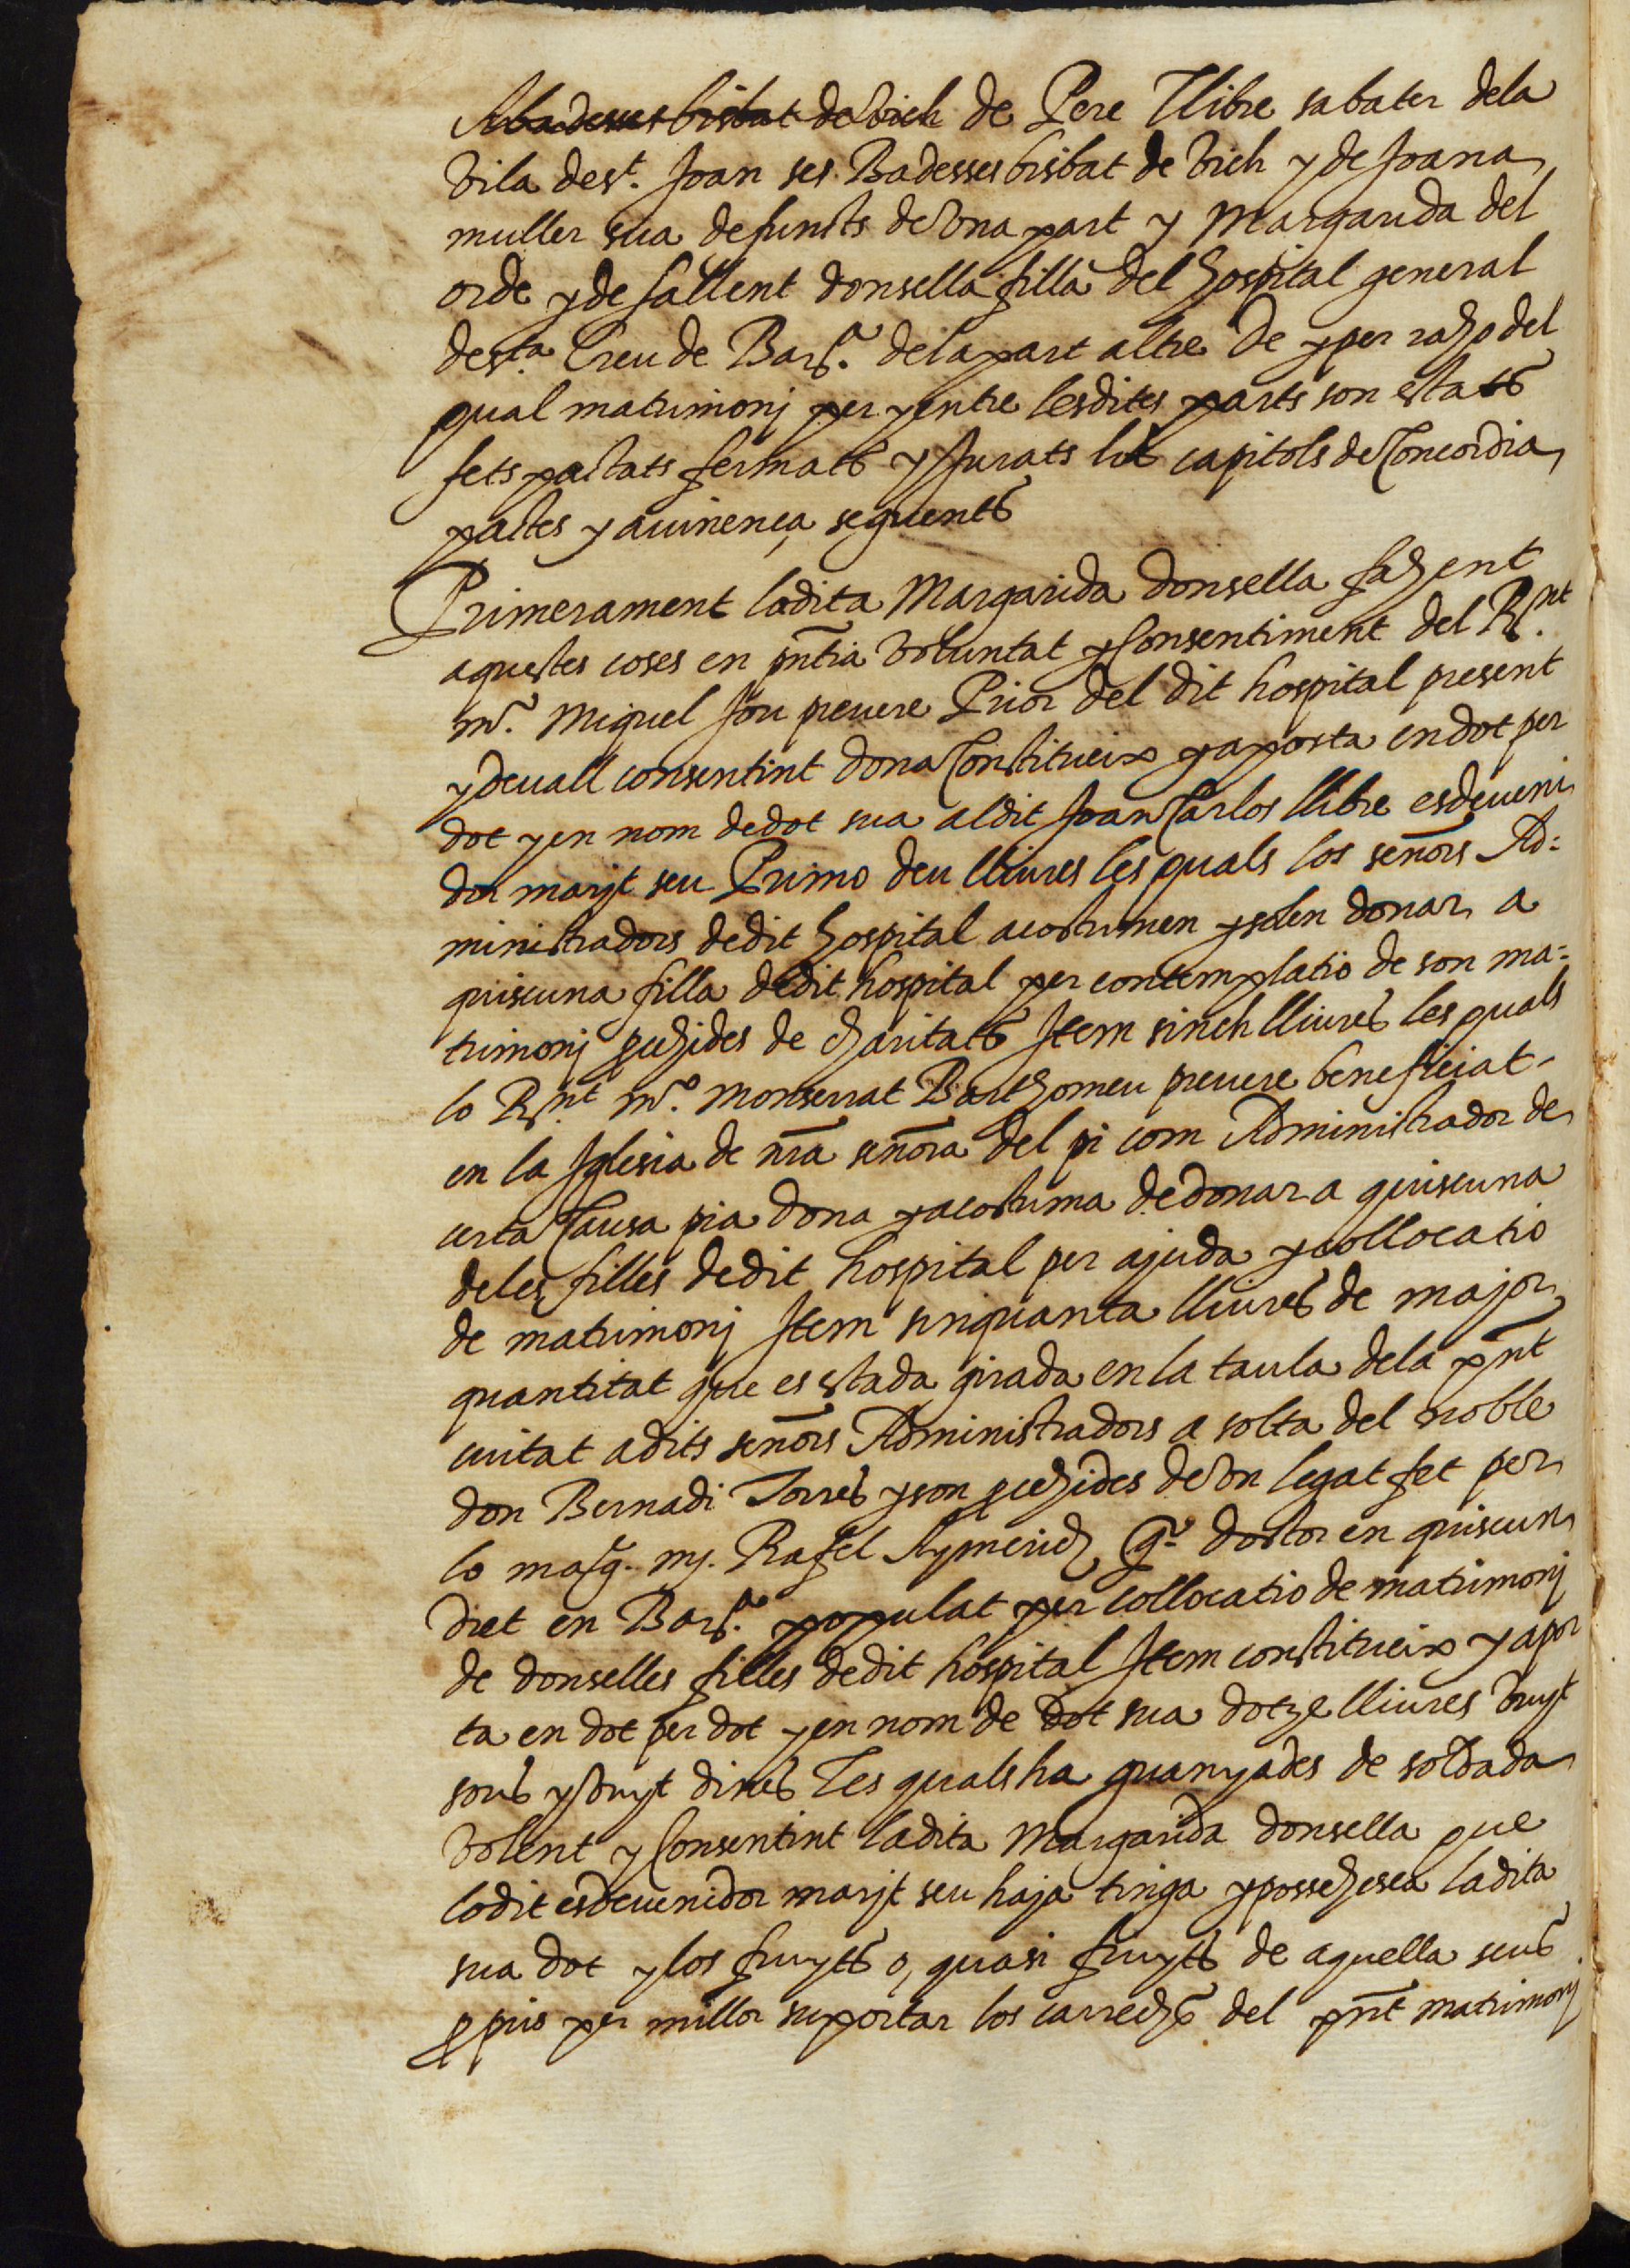 Abadesses bisbat de Vich de Pere Llibre sabater dela
Vila de st. Joan ses Badesses bisbat de Vich y de Joana
muller sua defuncts de Vna part y Margarida del
orde y de sallent donsella filla del hospital general
de sta. Creu de Barna. dela part altre De y per raho del
qual matrimonj per y entre lesdites parts son estats
fets pactats fermats y Jurats los capitols de Concordia
pactes y auinença seguents
Primerament ladita Margarida donsella fahent
aquestes coses en pntia Voluntat y Consentiment del Rnt.
mo. Miquel Jou preuere Prior del dit hospital present
y deuall consentint dona Constitueix y aporta en dot per
dot y en nom de dot sua aldit Joan Carlos llibre esdeueni
dor marjt seu Primo deu lliures les quals los señors Ad:
ministradors dedit hospital acostumen y solen donar a
quiscuna filla dedit hospital per contemplatio de son ma:
trimonj exhides de charitats Item sinch lliures les quals
lo Rnt mo. Monserrat Barthomeu preuere beneficiat
en la Iglesia de nra señora del pi com Administrador de
certa Causa pia dona y acostuma de donar a quiscuna
deles filles dedit hospital per ajuda y collocatio
de matrimonj Item sinquanta lliures de major
quantitat que es estada girada en la taula dela pnt
ciutat adits señors Administradors a solta del noble
don Bernadi Torres y son exhides de Vn legat fet per
lo magc. mj. Rafel Aymerich qo. doctor en quiscun
dret en Barna. populat per collocatio de matrimonj
de donselles filles dedit hospital Item constitueix y apor
ta en dot per dot y en nom de dot sua dotze lliures Vuyt
sous y Vuyt dines Les quals ha guanyades de soldada
Volent y Consentint ladita Margarida donsella que
lodit esdeuenidor marjt seu haja tinga y possehesca ladita
sua dot y los fruyts o, quasi fruyts de aquella seus
ppis per millor suportar los carrechs del pnt matrimonj